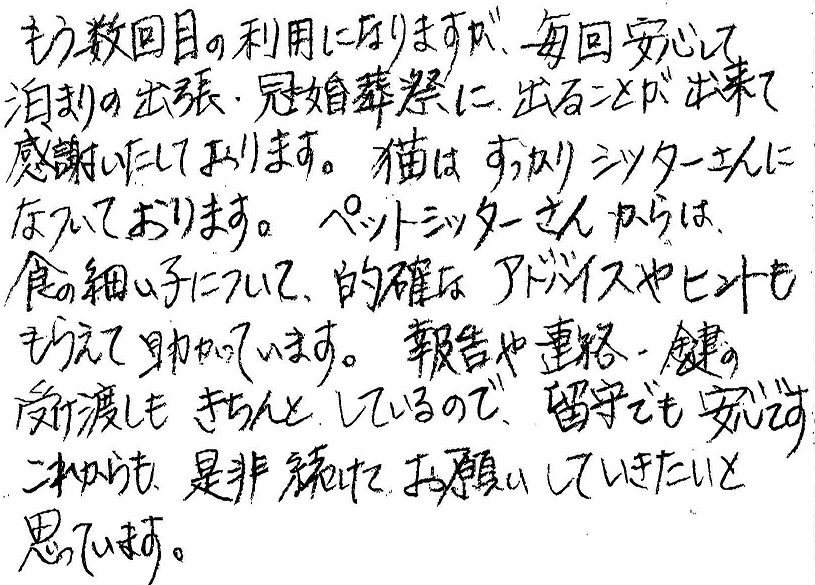 もう数回目の利用になりますが、毎回安心して
泊まりの出張・冠婚葬祭に出ることが出来て
感謝いたしております。猫はすっかりシッターさんに
なついております。ペットシッターさんからは、
食の細い子について、的確なアドバイスやヒントも
もらえて助かっています。報告や連絡・鍵の
受け渡しもきちんとしているので、留守でも安心です
これからも、是非続けてお願いしていきたいと
思っています。